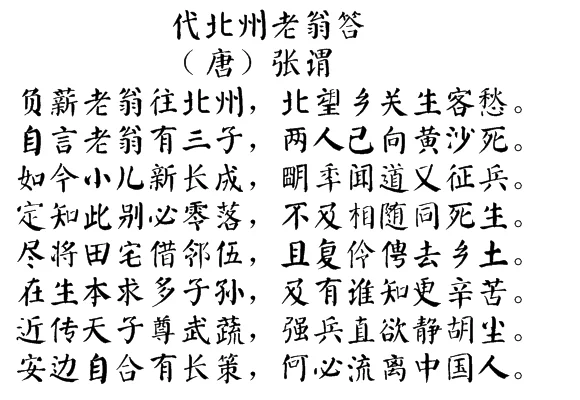 代北州老翁答
（唐）张谓
负薪老翁往北州，北望乡关生客愁。
自言老翁有三子，两人已向黄沙死。
如今小儿新长成，明年闻道又征兵。
定知此别必零落，不及相随同死生。
尽将田宅借邻伍，且复伶俜去乡土。
在生本求多子孙，及有谁知更辛苦。
近传天子尊武蔬，强兵直欲静胡尘。
安边自合有长策，何必流离中国人。